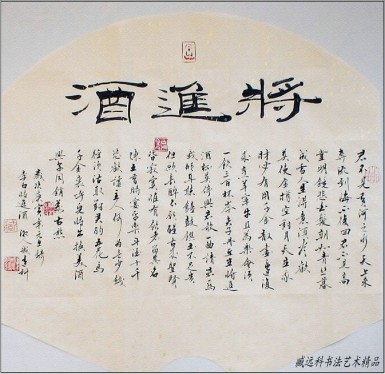 將進酒
君不見黃河之水天上來
奔流到海不復回君不見高
堂明鏡悲白髮朝如青絲暮
成雪人生得意須盡歡
莫使金樽空對月天生我
材必有用千金散盡還復
來烹羊宰牛且為樂會須
一飲三百杯岑夫子丹丘生將進
酒杯莫停與君歌一曲請君為
我傾耳聽鐘鼓饌玉不足貴
但願長醉不願醒古來聖賢
皆寂寞惟有飲者留其名
陳王昔時宴平樂斗酒十千
恣歡謔主人何為言少錢
徑須沽取對君酌五花馬
千金裘呼兒將出換美酒
與爾同銷萬古愁
李白將進酒
臧远科书法艺术精品